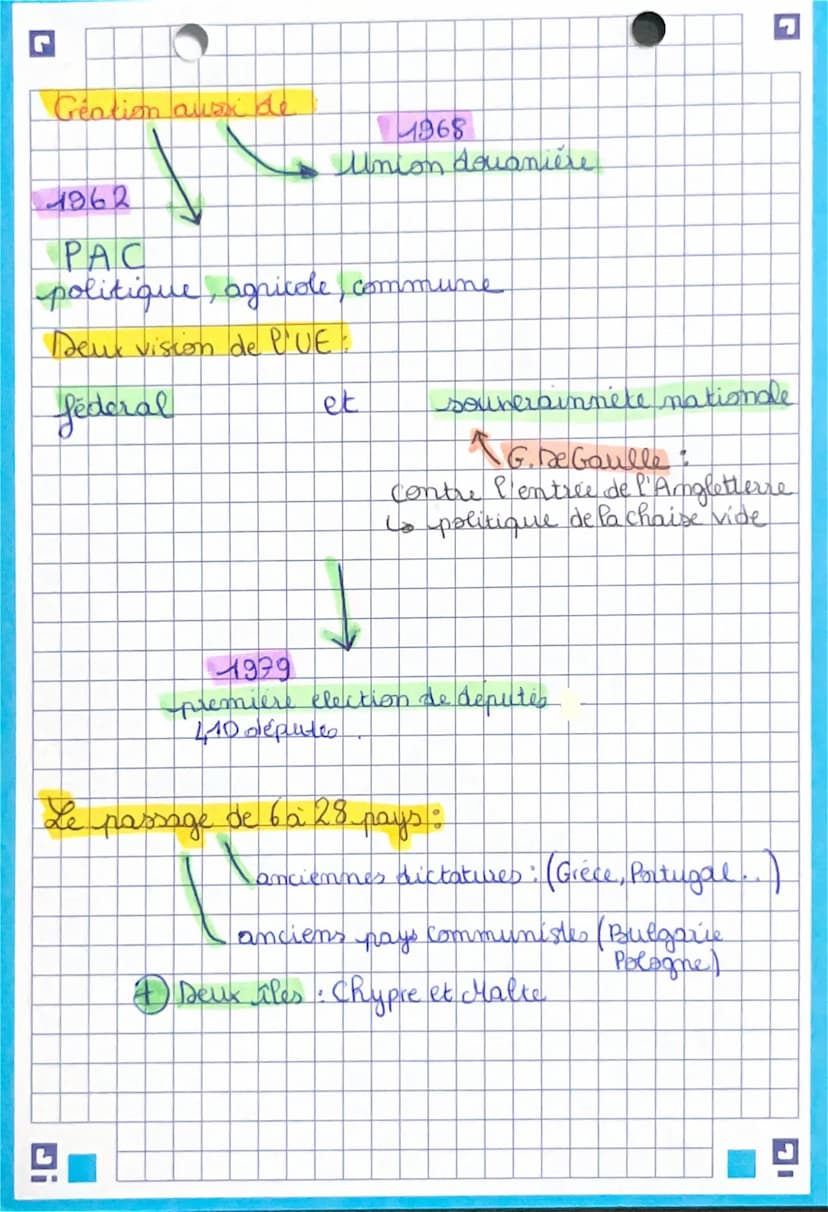 Création aussi de
1968
Union douanière
1962
PAC
politique, agricole, commune
Deux vision de l'UE :
fédéral et souverainnété nationale
G. De Gaulle :
contre l'entrée de l'Angletterre
↳ politique de la chaise vide
1979
première élection de députés
410 députés.
Le passage de 6 à 28 pays :
anciennes dictatures : (Grèce, Portugal..)
anciens pays communistes (Bulgarie
Pologne)
+ Deux îles : Chypre et Malte